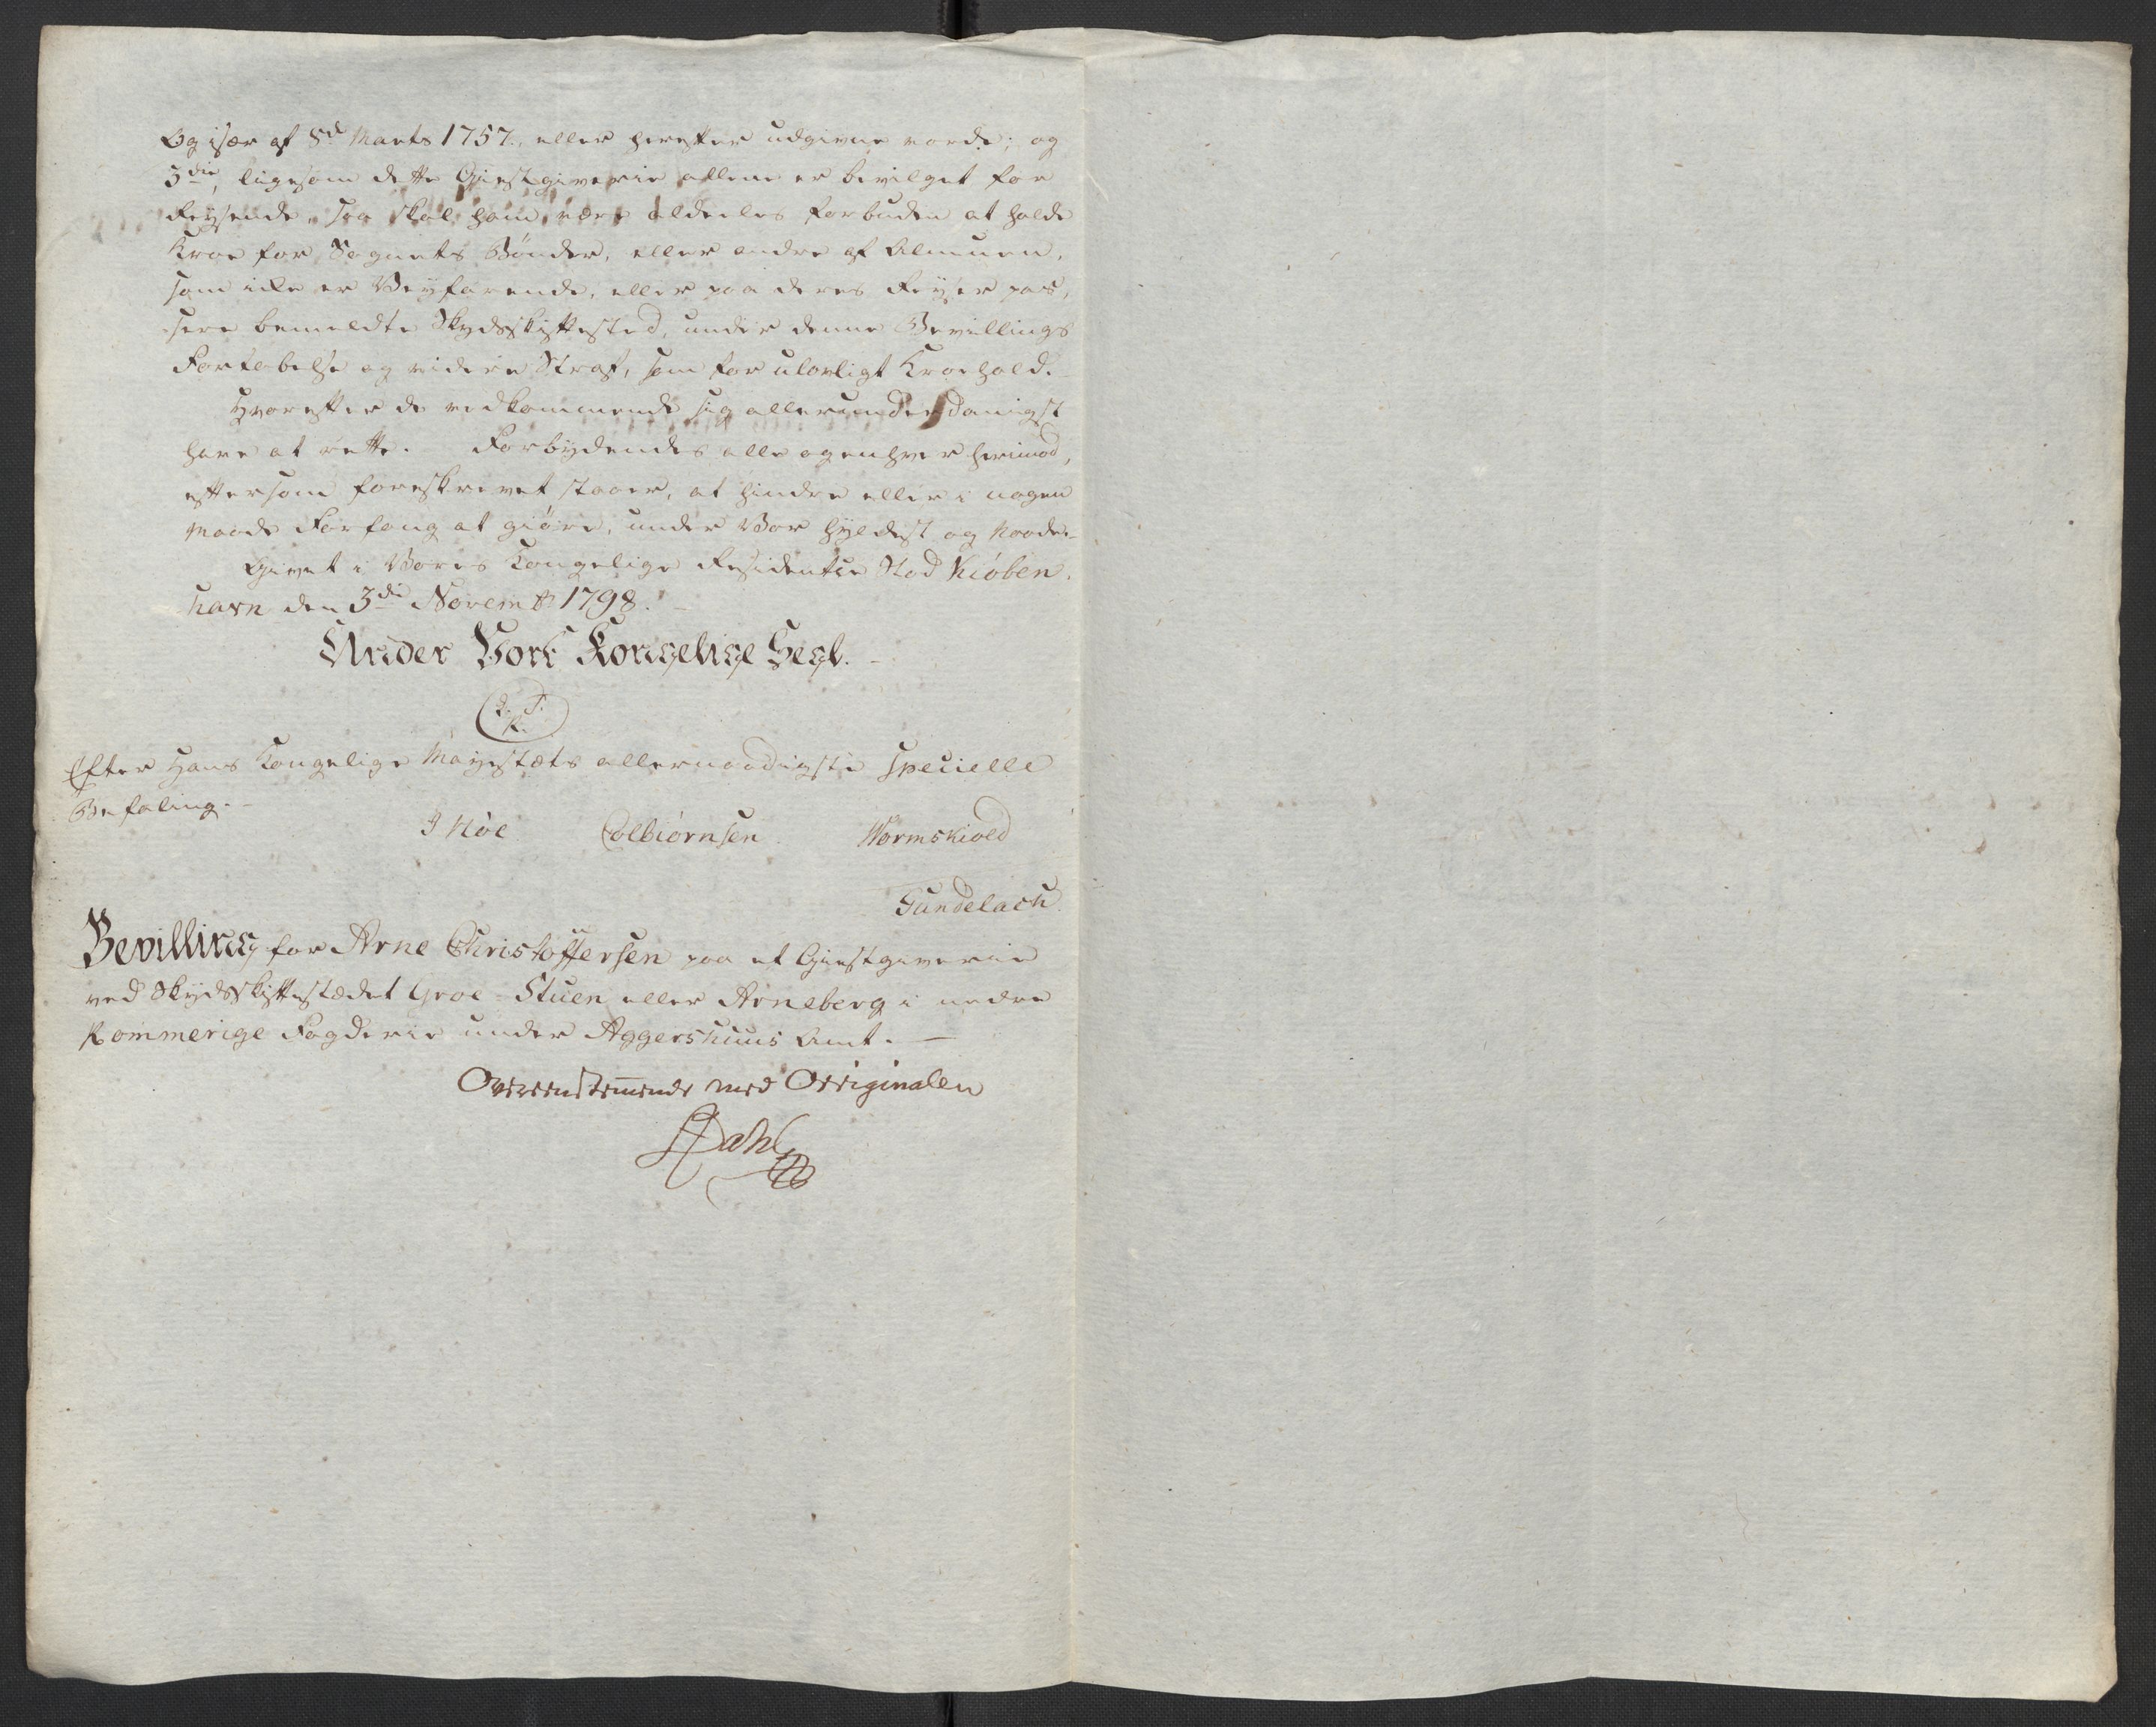 Og især af 8d Marts 1757., eller herefter udgivne vorde; og
3die, liigesom dette Giestgiverie allene er bevilget for
Reysende, saa skal ham være aldeeles forbuden at holde
Kroe for Sognets Bønder, eller andre af Almuen,
som icke er Veyfarende, eller paa deres Reyser pas,
sere bemeldte Skydsskiftested, under denne Bevillings
Fortabelse og videre Straf, som for ulovligt Kroehold.
Hvorefter de vedkommende sig allerunderdanigst
have at rette. Forbydendes alle og enhver herimod,
eftersom foreskrevet staaer, at hindre eller i nogen
Maade Forfang at giøre, under Vor Hyldest og Naade.
Givet i Vores Kongelige Residentze Stad Kiøben,
havn den 3die Novembr 1798.
Under Vort Kongelige Segl.
L. S.
R.
Efter Hans Kongelige Mayestæts allernaadigste specielle
Befaling.
J Høe Colbiørnsen. Wormskiold
Gundelach.
Bevilling for Arne Christoffersen paa et Giestgiverie
ved Skydsskiftestædet Groe-Stuen eller Arneberg i nedre
Rommerige Fogderie under Aggershuus Amt.
Overeenstemmende med Originalen
Dahl